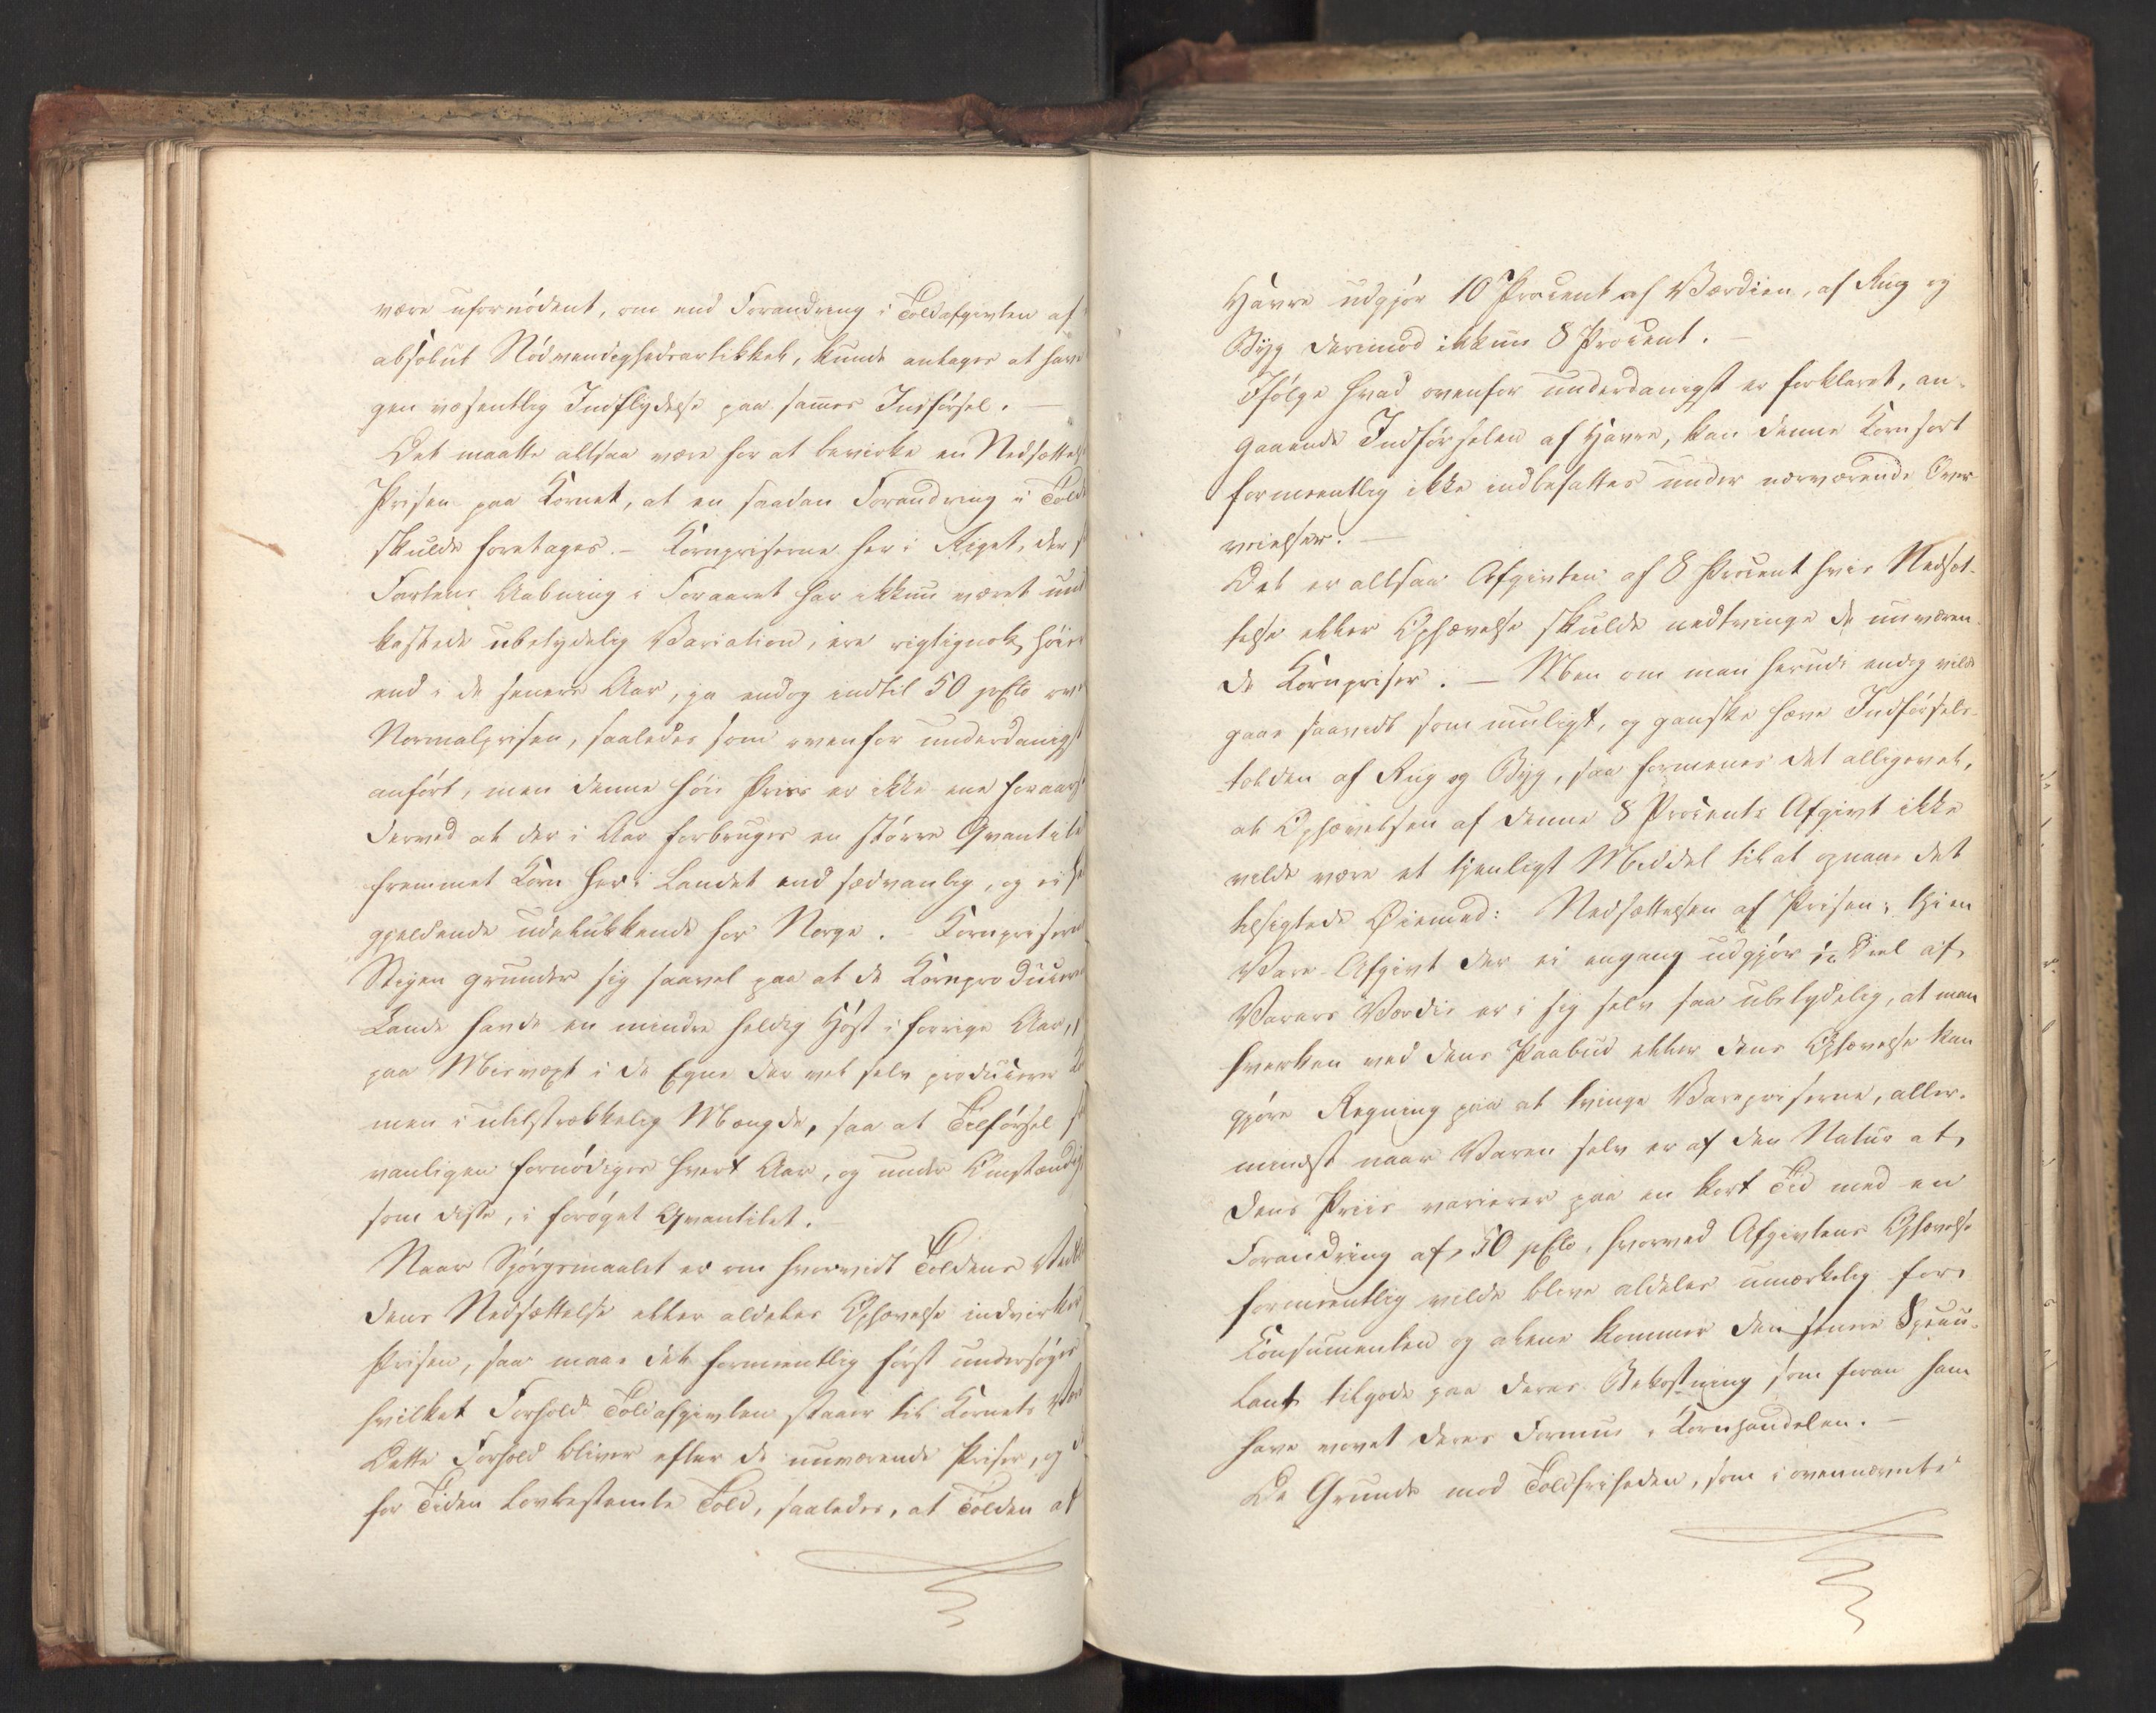 være ufornödent, om end Forandring i Toldafgivten af
absolut Nödvendighedsartikkel, kunde antages at have
gen væsentlig Indflydelse paa sammes Indförsel. —
Det maatte altsaa være for at bevirke en Nedsættelse
Prisen paa Kornet, at en saadan Forandring i Told
skulde foretages. — Kornpriserne her i Riget, der
Fartens Aabning i Foraaret har ikkun været und
kastede ubetydelig Variation, ere rigtignok höie
end i de senere Aar, ja endog indtil 50 pCto over
Normalprisen, saaledes som ovenfor underdanigst
anfört, men denne höie Priis er ikke ene foraars
derved at der i Aar forbruges en större Qvantitet
fremmet Korn her i Landet end sædvanlig, og ei he
gjeldende udelukkende for Norge. — Kornprisernes
Stigen grunder sig saavel paa at de Kornproducere
Lande havde en mindre heldig Höst i forrige Aar,
paa Misvæxt i de Egne der vel selv producerer Ko
men i utilstrækkelig Mængde, saa at Tilförsel
vanligen fornödiges hvert Aar, og under Omstændig
som disse, i foröget Qvantitet.
Naar Spörgsmaalet er om hvorvidt Toldens Vedb
dens Nedsættelse eller aldeles Ophævelse indvirker
Prisen, saa maae det formeentlig först undersöges
hvilket Forhold Toldafgivten staaer til Kornets Vær
Dette Forhold bliver efter de nuværende Priser, og d
for Tiden Lovbestemte Told, saaledes, at Tolden af
Havre udgjör 10 Procent af Værdien, af Rug og
Byg derimod ikkun 8 Procent. —
Ifölge hvad ovenfor underdanigst er forklaret, an-
gaaende Indförselen af Havre, kan denne Kornsort
formeentlig ikke indbefattes under nærværende Over-
veielser. —
Det er altsaa Afgivten af 8 Procent hvis Nedsæt-
telse eller Ophævelse skulde nedtvinge de nuværen-
de Kornpriser. — Men om man herudi endog vilde
gaae saavidt som muligt, og ganske hæve Indförsels-
tolden af Rug og Byg, saa formenes det alligevel,
at Ophævelsen af denne 8 Procents Afgivt ikke
vilde være et tjenligt Middel til at opnaae det
tilsigtede Öiemed: Nedsættelsen af Prisen; thi en
Vare-Afgivt der ei engang udgjör 1/10 Deel af
Varens Værdie er i sig selv saa ubetydelig, at man
hverken ved dens Paabud eller dens Ophævelse kan
gjöre Regning paa at tvinge Varepriserne, aller-
mindst naar Varen selv er af den Natur at
dens Priis varierer paa en kort Tid med en
Forandring af 50 pCto, hvorved Afgivtens Ophævelse
formeentlig vilde blive aldeles umærkelig for
Consumenten og alene kommer den senere Specu-
lant tilgode paa deres Bekostning som foran ham
have vovet deres Formue i Kornhandelen. —
De Grunde mod Toldfriheden, som i ovennævnte